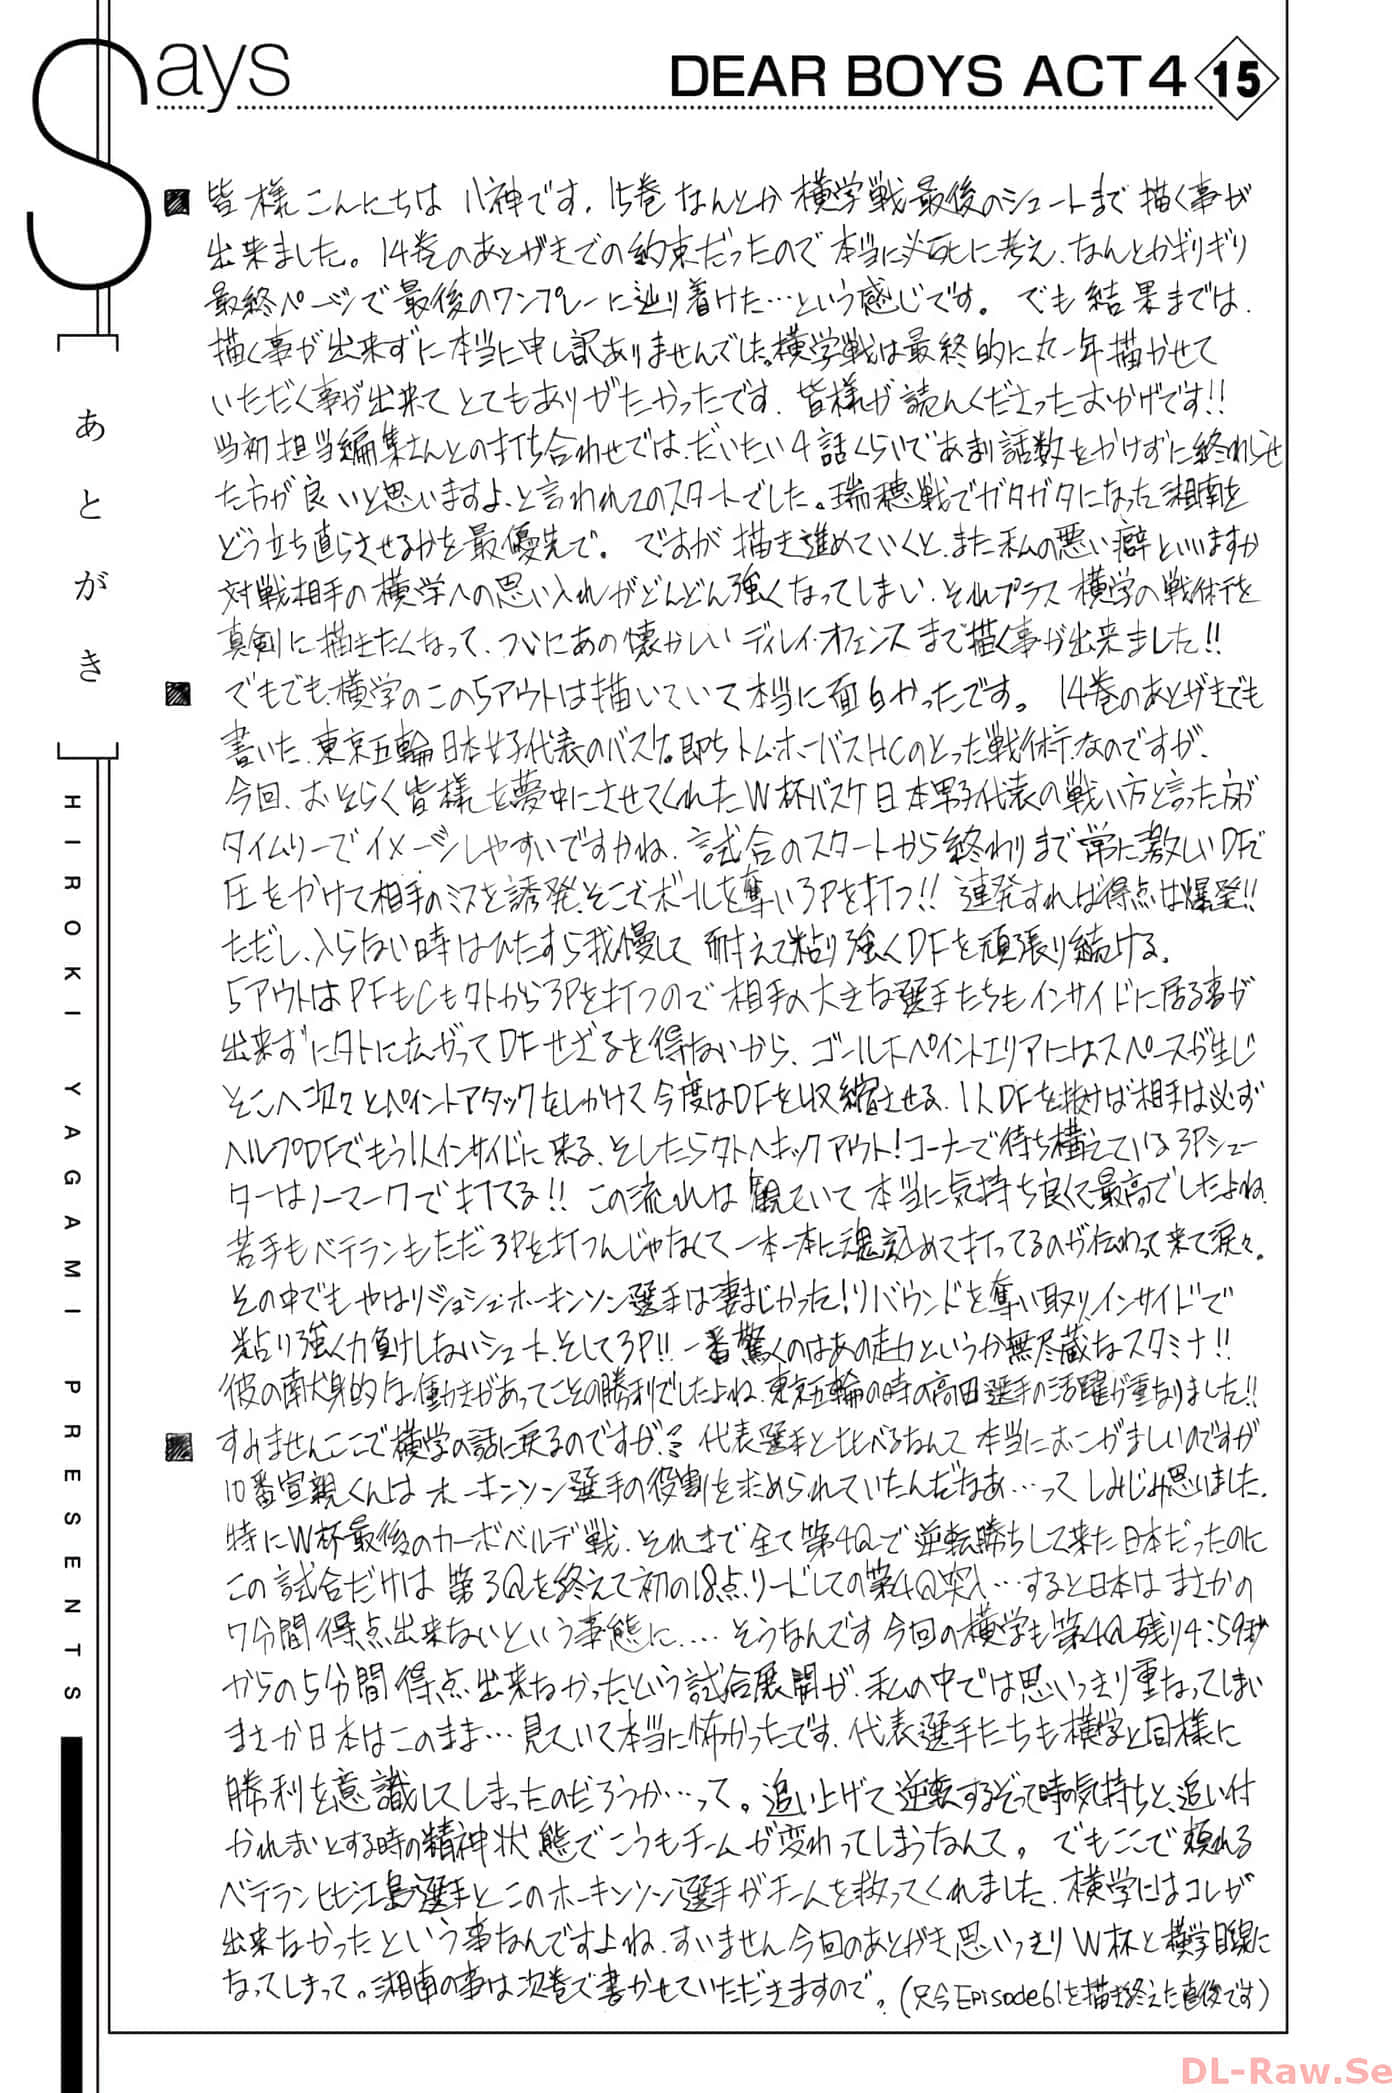 Says
DEAR BOYS ACT4 15
[あとがき]
HIROKI YAGAMI PRESENTS
■ 皆様こんにちは 八神です。15巻 なんとか 横学戦最後のシュートまで 描く事が
出来ました。14巻のあとがきでの約束だったので 本当に必死に考え、なんとかギリギリ
最終ページで最後のワンプレーに辿り着けた…という感じです。 でも 結果までは
描く事が出来ずに本当に申し訳ありませんでした。横学戦は最終的に丸一年描かせて
いただく事が出来て とてもありがたかったです。皆様が読んでくださったおかげです!!
当初担当編集さんとの打ち合わせでは、だいたい4話くらいであまり話数をかけずに終わらせ
た方が良いと思いますよ、と言われてのスタートでした。瑞穂戦でガタガタになった湘南を
どう立ち直らせるかを最優先で。 ですが 描き進めていくと、また私の悪い癖といいますか
対戦相手の横学への思い入れがどんどん強くなってしまい、それプラス 横学の戦術を
真剣に描きたくなって、ついにあの懐かしい ディレイ・オフェンスまで描く事が出来ました!!
■ でもでも、横学のこの5アウトは描いていて本当に面白かったです。 14巻のあとがきでも
書いた、東京五輪日本女子代表のバスケ。即ちトム・ホーバスHCのとった戦術なのですが、
今回、おそらく皆様を夢中にさせてくれたW杯バスケ日本男子代表の戦い方と言った方が
タイムリーでイメージしやすいですかね。試合のスタートから終わりまで常に激しいDFで
圧をかけて相手のミスを誘発、そこでボールを奪い3Pを打つ!! 連発すれば得点は爆発!!
ただし、入らない時はひたすら我慢して 耐えて粘り強くDFを頑張り続ける。
5アウトはPFもCも外から3Pを打つので 相手の大きな選手たちもインサイドに居る事が
出来ずに外に広がってDFせざるを得ないから、ゴール下ペイントエリアにはスペースが生じ
そこへ次々とペイントアタックをしかけて今度はDFを収縮させる。1人DFを抜けば相手は必ず
ヘルプDFでもう1人インサイドに来る。そしたら外へキックアウト!コーナーで待ち構えている3Pシュー
ターはノーマークで打てる!! この流れは 観ていて 本当に気持ち良くて最高でしたよね。
若手もベテランもただ3Pを打つんじゃなくて一本一本に魂込めて打ってるのが伝わって来て涙々。
その中でもやはりジョシュ・ホーキンソン選手は凄まじかった!リバウンドを奪い取り、インサイドで
粘り強く力負けしないシュート、そして3P!! 一番驚くのはあの走力というか無尽蔵なスタミナ!!
彼の献身的な働きがあってこその勝利でしたよね。東京五輪の時の高田選手の活躍が重なりました!!
■ すみませんここで横学の話に戻るのですが、代表選手と比べるなんて 本当におこがましいのですが
10番宣親くんはホーキンソン選手の役割を求められていたんだなあ…って しみじみ思いました。
特にW杯最後のカーボベルデ戦。それまで全て第4Qで逆転勝ちして来た日本だったのに
この試合だけは 第3Qを終えて初の18点リードしての第4Q突入…すると日本は まさかの
7分間得点出来ないという事態に…. そうなんです今回の横学も第4Q残り4:59秒
からの5分間得点出来なかったという試合展開が、私の中では思いっきり重なってしまい
まさか日本はこのまま…見ていて本当に怖かったです。代表選手たちも横学と同様に
勝利を意識してしまったのだろうか…って。追い上げて逆転するぞって時の気持ちと、追い付
かれまいとする時の精神状態でこうもチームが変わってしまうなんて。 でもここで頼れる
ベテラン比江島選手とこのホーキンソン選手がチームを救ってくれました。横学にはコレが
出来なかったという事なんですよね。すいません今回のあとがき思いっきりW杯と横学目線に
なってしまって。湘南の事は次巻で書かせていただきますので。(只今Episode61を描き終えた直後です)
DL-Raw.Se